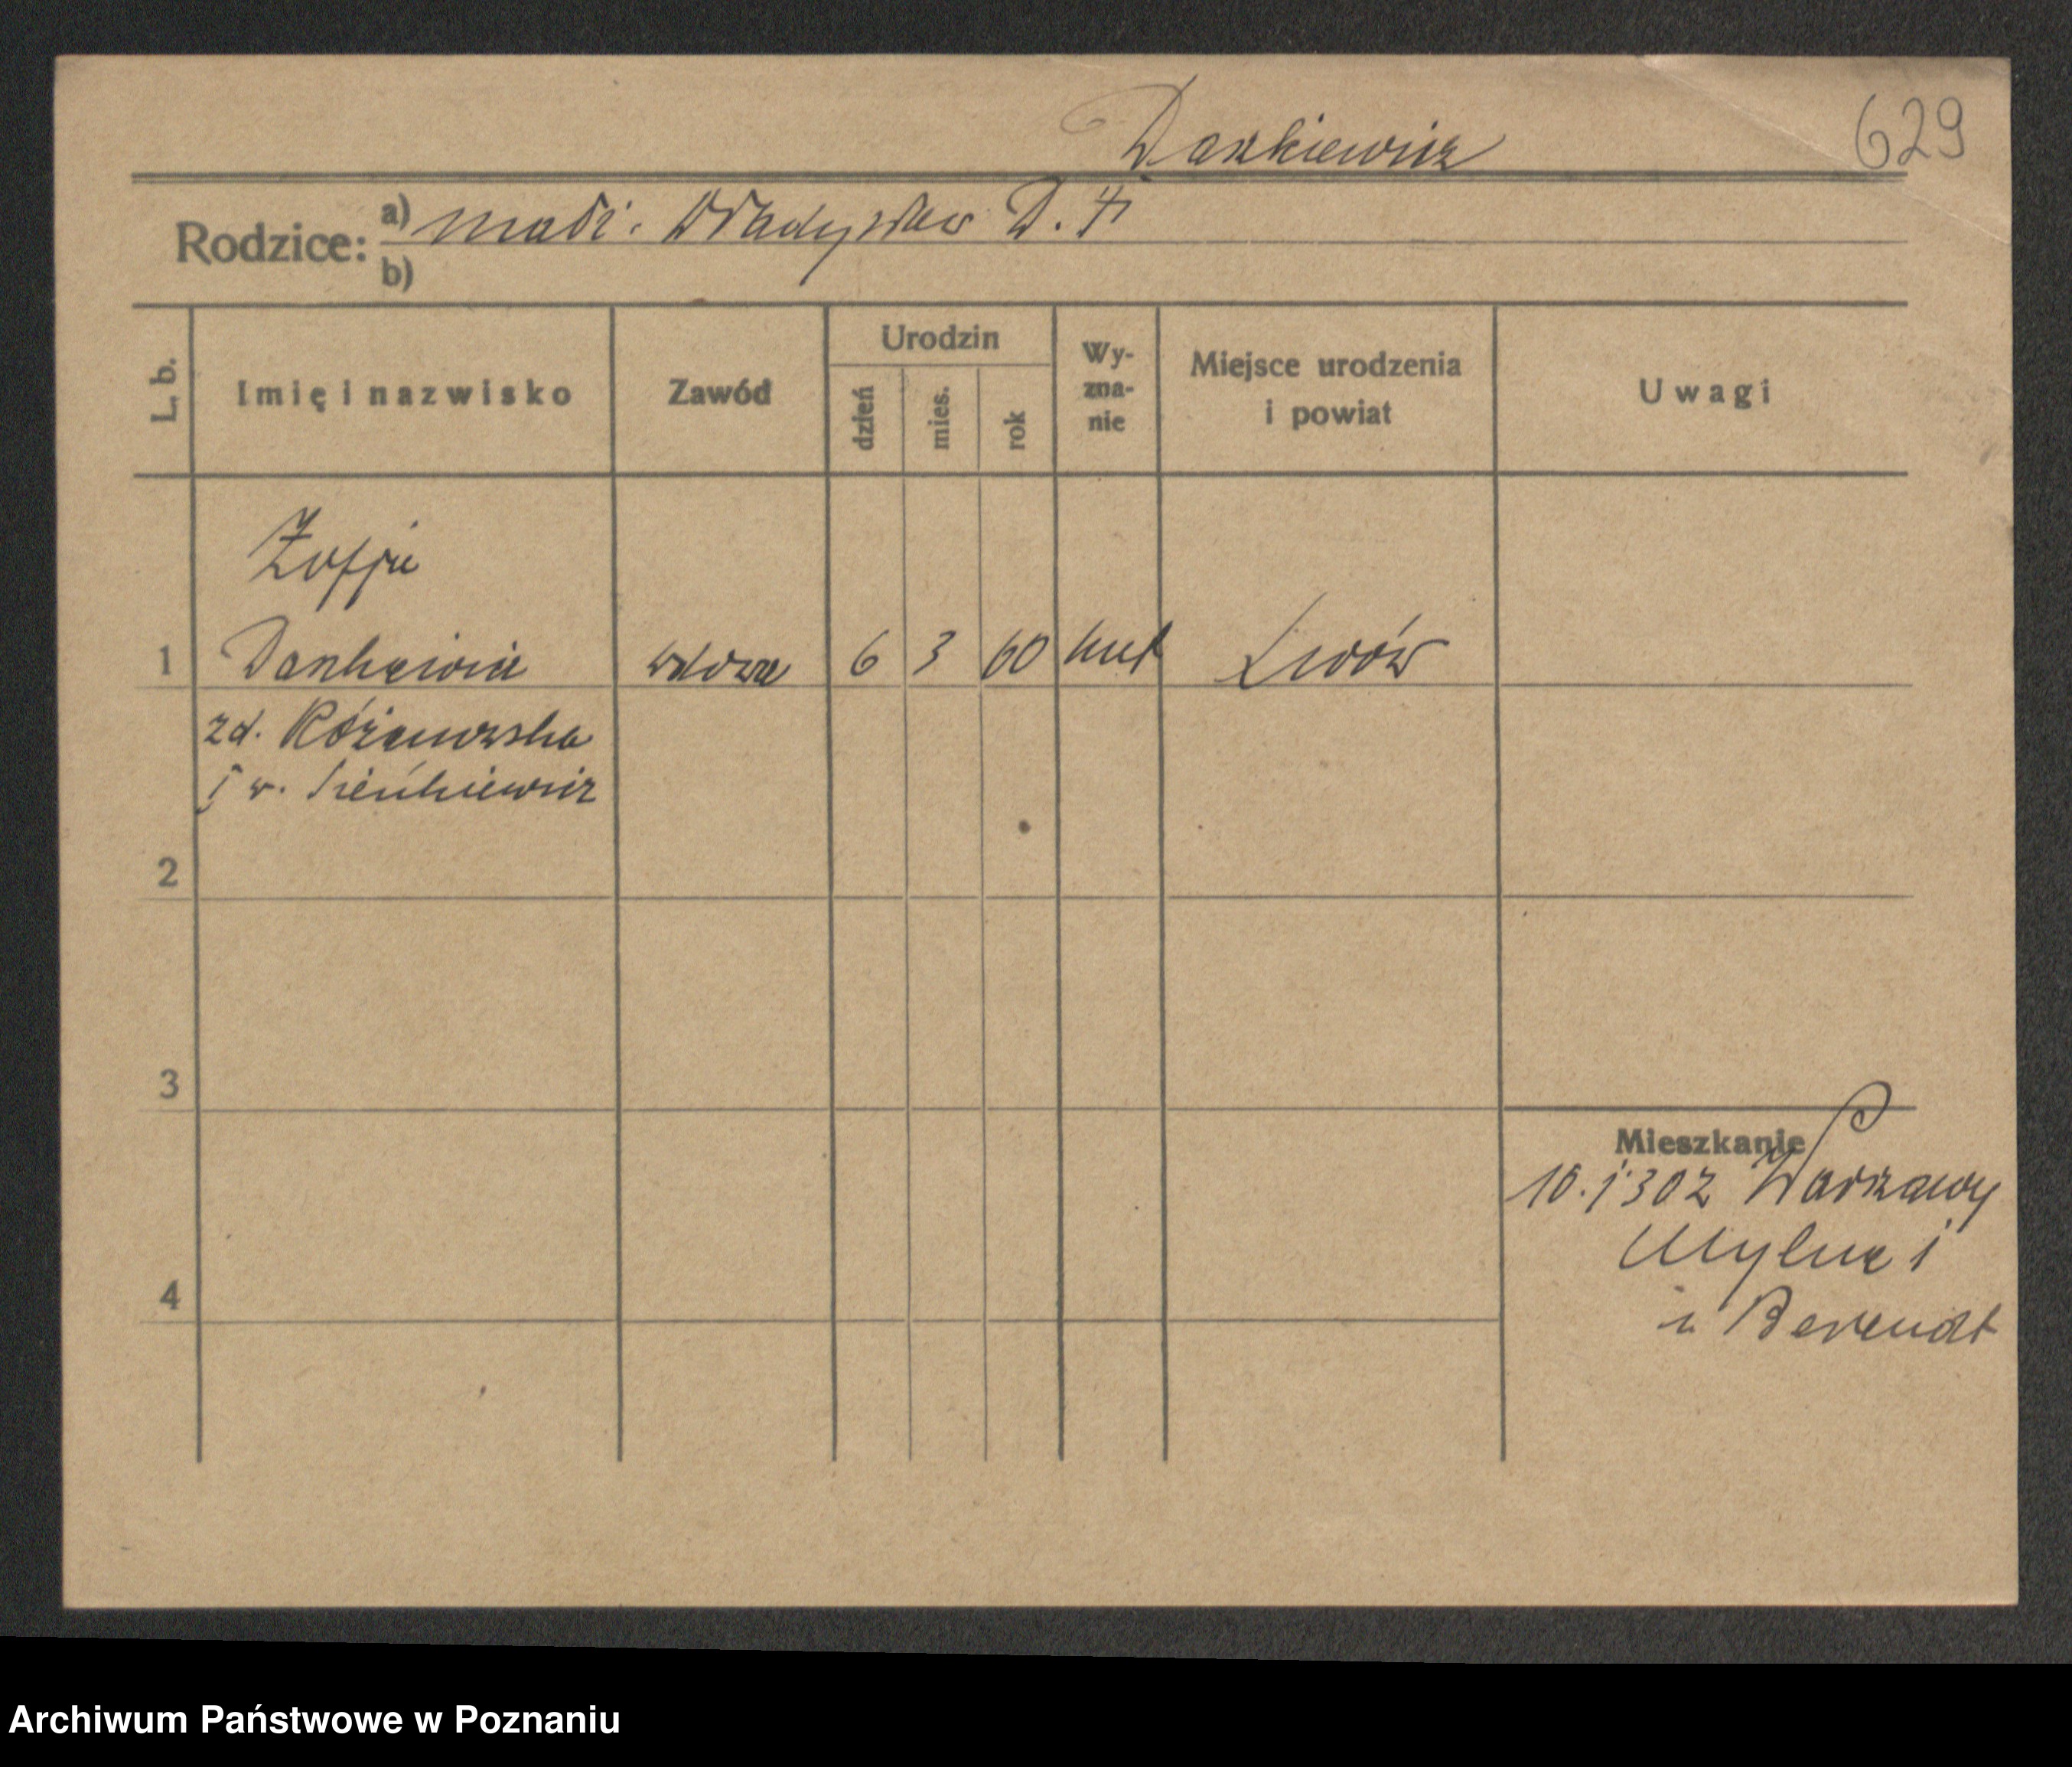 Daszkiewicz
629
Rodzice: a) małż. Władysław D. †
b)
L. b.
Imię i nazwisko
Zawód
Urodzin
dzień
mies.
rok
Wy-
zna-
nie
Miejsce urodzenia
i powiat
Uwagi
Zofja
1 wdowa 6 3 60 kat Lwów
zd. Różanowska
2
3
4
Mieszkanie
10.1 30 z Warszawy
Młyńska 1
u Berendt
Archiwum Państwowe w Poznaniu